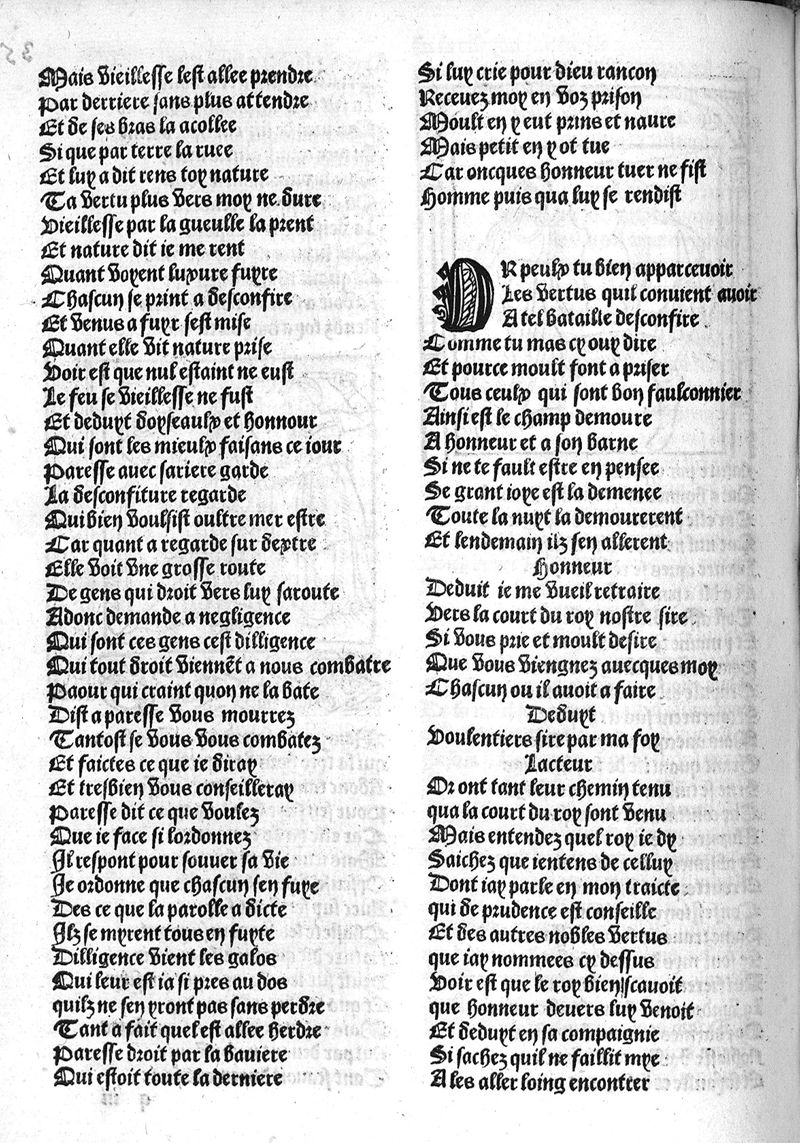 Mais vieillesse lest allee prendre
Par derriere sans plus attendre
Et de ses bras la acollee
Si que par terre la ruee
Et luy a dit rens toy nature
Ta vertu plus vers moy ne dure
Vieillesse par la gueulle la prent
Et nature dit ie me rent
Quant voyent luxure fuyre
Chascun se print a desconfire
Et venus a fuyr sest mise
Quant elle vit nature prise
Voir est que nul estaint ne eust
Le feu se vieillesse ne fust
Et deduyt doyseaulx et honnour
Qui sont les mieulx faisans ce iour
Paresse auec sariere garde
La desconfiture regarde
Qui bien voulsist oultre mer estre
Car quant a regarde sur dextre
Elle voit vne grosse route
De gens qui droit vers luy saroute
Adonc demande a negligence
Qui sont ces gens cest dilligence
Qui tout droit viennẽt a nous combatre
Paour qui craint quon ne la bate
Dist a paresse vous mourrez
Tantost se vous vous combatez
Et faictes ce que ie diray
Et tresbien vous conseilleray
Paresse dit ce que voulez
Que ie face si lordonnez
Il respont pour sauuer sa vie
Je ordonne que chascun sen fuye
Des ce que la parolle a dicte
Ilz se myrent tous en fuyte
Dilligence vient les galos
Qui leur est ia si pres au dos
quilz ne sen yront pas sans perdre
Tant a fait quel est allee herdre
Paresse droit par la bauiere
Qui estoit toute la derniere
Si luy crie pour dieu rancon
Receuez moy en voz prison
Moult en y eut prins et naure
Mais petit en y ot tue
Car oncques honneur tuer ne fist
Homme puis qua luy se rendist
OR peulx tu bien apparceuoir
Les vertus quil conuient auoir
A tel bataille desconfire
Comme tu mas cy ouy dire
Et pource moult font a priser
Tous ceulx qui sont bon faulconnier
Ainsi est le champ demoure
A honneur et a son barne
Si ne te fault estre en pensee
Se grant ioye est la demenee
Toute la nuyt la demourerent
Et lendemain ilz sen allerent
Honneur
Deduit ie me vueil retraire
Vers la court du roy nostre sire
Si vous prie et moult desire
Que vous viengnez auecques moy
Chascun ou il auoit a faire
Deduyt
Voulentiers sire par ma foy
Lacteur
Or ont tant leur chemin tenu
qua la court du roy sont venu
Mais entendez quel roy ie dy
Saichez que ientens de celluy
Dont iay parle en mon traicte
qui de prudence est conseille
Et des autres nobles vertus
que iay nommees cy dessus
Voir est que le roy bien scauoit
que honneur deuers luy venoit
Et deduyt en sa compaignie
Si sachez quil ne faillit mye
A les aller loing encontrer